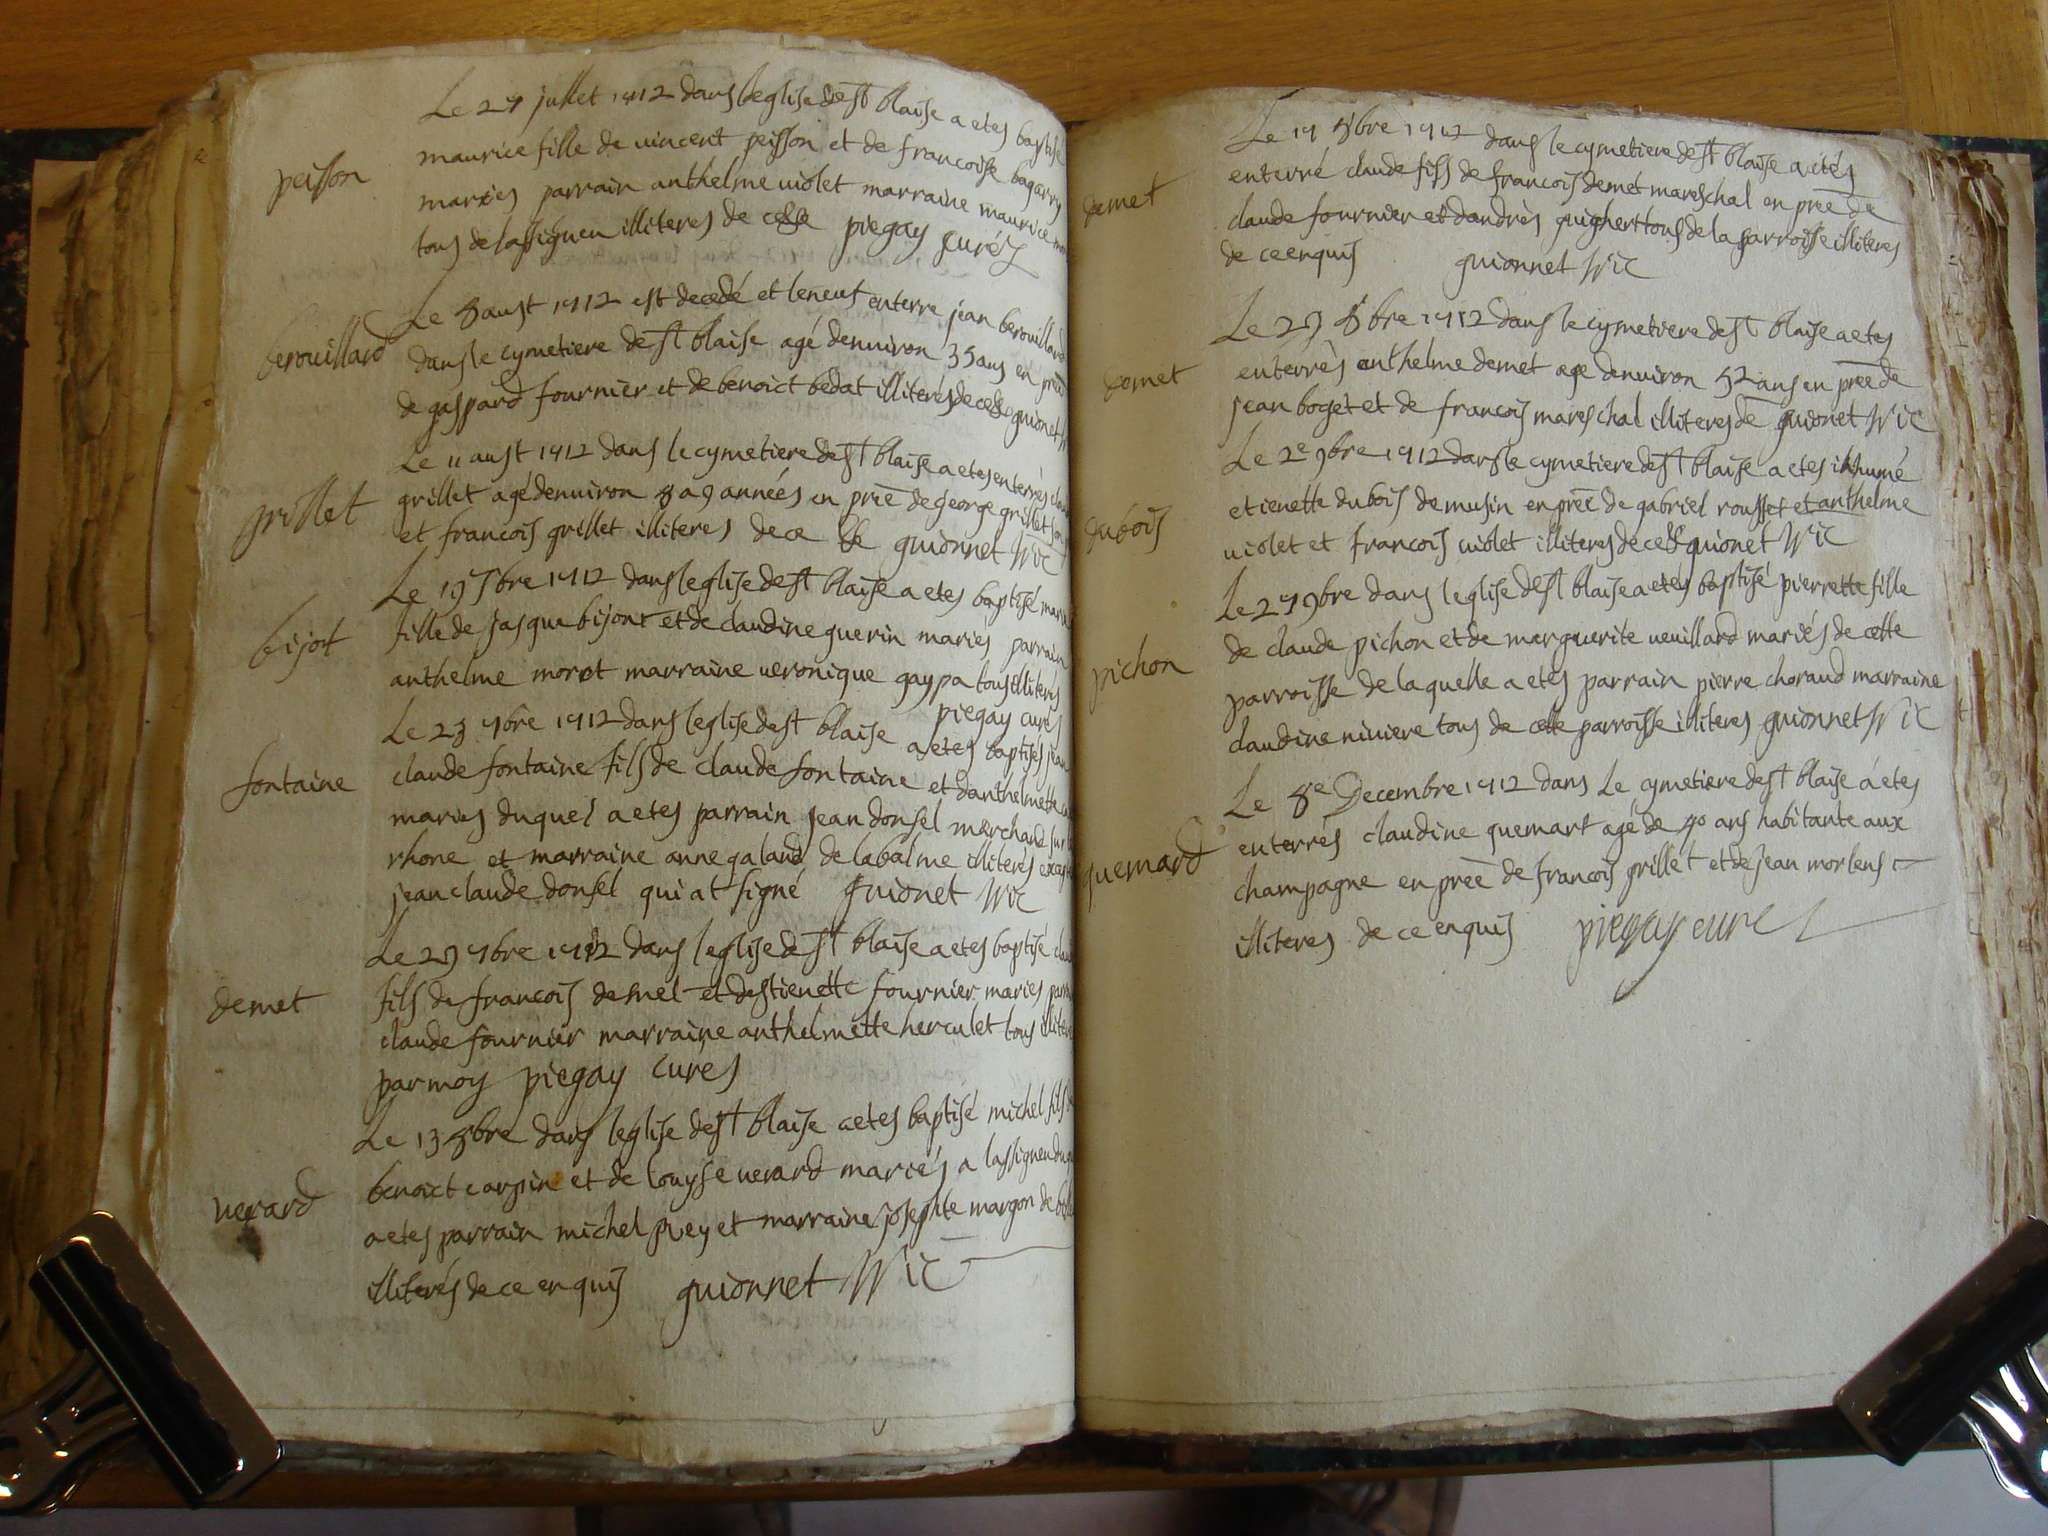 peisson
Le 27 jullet 1712 dans leglise de st blaise a etes baptise
maurice fille de vincent peisson et de francoise bagarry
maries parrain anthelme violet marraine maurice
tous de lassigneu illiteres de celle piegay curés
berouillard
Le 8 aust 1712 est decedé et leneuf enterre jean berouillard
dans le cymetiere de st blaise agé denuiron 35 ans en prēē
de gaspard fournier et de benoict bedat illiterés de celle guionet
grillet
Le 11 aust 1712 dans le cymetiere de st blaise a etes enterrés
grillet agé denuiron 8 a 9 années en prēē de george grillet
et francois grillet illiteres de ce guionnet vic
bijot
Le 19 7bre 1712 dans leglise de st blaise a etes baptisé
fille de jasque bijont et de claudine guerin maries parrain
anthelme morot marraine ueronique gaypa tous illiterés
piegay curés
fontaine
Le 23 7bre 1712 dans leglise de st blaise a etes baptises jean
claude fontaine fils de claude fontaine et danthelmette
maries duquel a etes parrain jean donsel marchand sur
rhone et marraine anne galand de labalme illiterés
jean claude donsel qui at signé guionet vic
demet
Le 29 7bre 1712 dans leglise de st blaise a etes baptisé
fils de francois demet et destienette fournier maries
claude fournier marraine anthelmette herculet tous
par moy piegay curés
uerard
Le 13 8bre dans leglise de st blaise a etes baptisé michel fils
benoict carpin et de louyse uerard mariés a lassigneu
a etes parrain michel prey et marraine josephte margon de
illiterés de ce enquis guionnet vic
demet
Le 17 8bre 1712 dans le cymetiere de st blaise a etés
enterré claude fils de francois demet mareschal en prēē de
claude fournier et dandrés guighert tous de la parroisse illiteres
de ce enquis guionnet vic
demet
Le 29 8bre 1712 dans le cymetiere de st blaise a etes
enterrés anthelme demet age denuiron 52 ans en prēē de
jean boget et de francois mareschal illiteres de guionet vic
dubois
Le 2e 9bre 1712 dans le cymetiere de st blaise a etes inhumé
etienette dubois de musin en prēē de gabriel rousset et anthelme
uiolet et francois uiolet illiteres de celle guionet vic
pichon
Le 27 9bre dans leglise de st blaise a etes baptisé pierrette fille
de claude pichon et de marguerite ueuillard mariés de cette
parroisse de laquelle a etes parrain pierre choraud marraine
claudine niuiere tous de cette parroisse illiteres guionnet vic
quemard
Le 8e Decembre 1712 dans Le cymetiere de st blaise a etes
enterrés claudine quemart agé de 70 ans habitante aux
champagne en prēē de francois grillet et de jean morlens
illiteres de ce enquis piegay curé